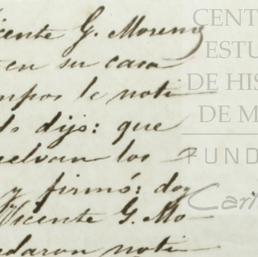 icente G. Moreno
en su casa
mpos le noti
ds dijo: que
uelvan los
y firmó: doy
Vicente G. Mo-
edaron noti-
CENT
ESTU
DE HIS
DE M
FUND
Cari